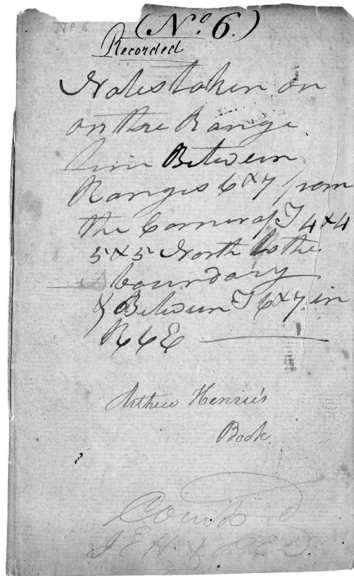 No 6
(No. 6.)
Recorded
Notes taken on
on the Range
line Between
Ranges 6 & 7 from
the Corner of T 4 & 4
5 & 5 North to the
boundary
& Between T 6 & 7 in
R 6 E
Arthur Henrie's
Book
Comp'd